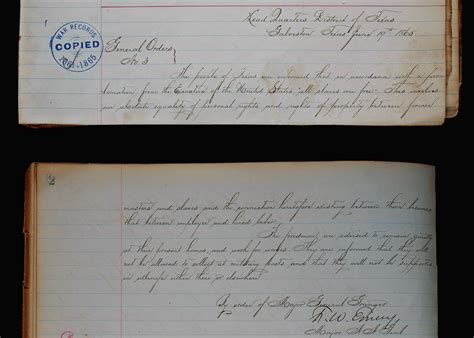 WAR RECORDS
COPIED
1861-1865
Head Quarters District of Texas
Galveston Texas June 19th 1865.
General Orders
No. 3
The people of Texas are informed that in accordance with a proc-
lamation from the Executive of the United States "all slaves are free." This involves
an absolute equality of personal rights and rights of property between former
2
masters and slaves and the connection heretofore existing between them becomes
that between employer and hired labor.
The freedmen are advised to remain quietly
at their present homes, and work for wages. They are informed that they will
not be allowed to collect at military posts and that they will not be supported
in idleness either there or elsewhere.
By order of Major General Granger
F. W. Emery
Major A. A. Genl.